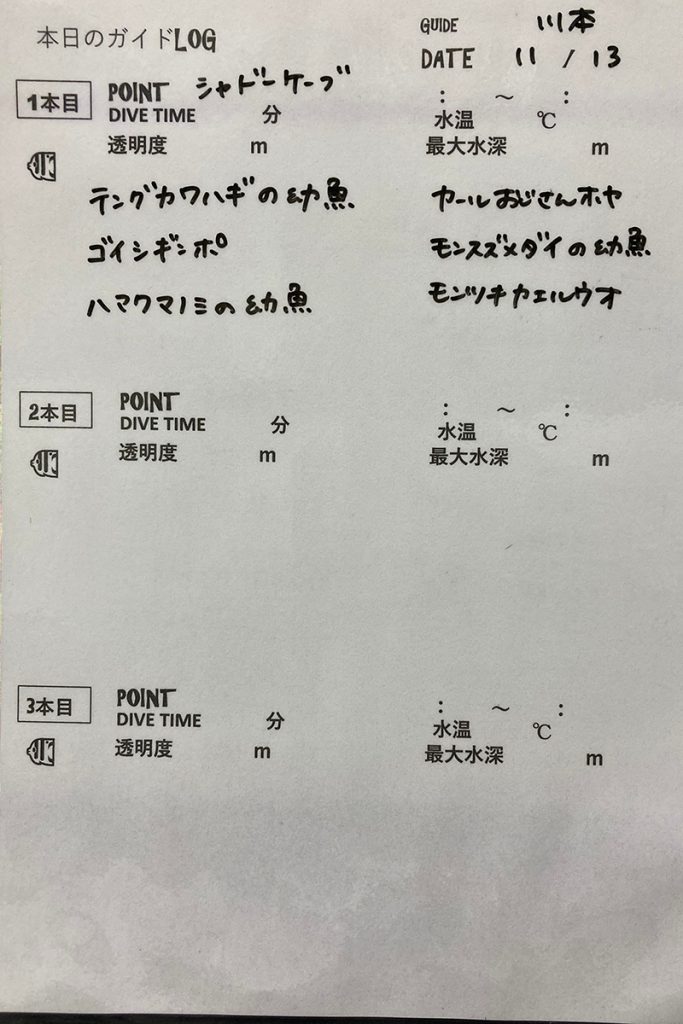 本日のガイドLOG
GUIDE 川本
DATE 11 / 13
1本目 POINT シャドーケーブ : ～ :
DIVE TIME 分 水温 ℃
透明度 m 最大水深 m
テングカワハギの幼魚 カールおじさんホヤ
ゴイシギンポ モンスズメダイの幼魚
ハマクマノミの幼魚 モンツキカエルウオ
2本目 POINT : ～ :
DIVE TIME 分 水温 ℃
透明度 m 最大水深 m
3本目 POINT : ～ :
DIVE TIME 分 水温 ℃
透明度 m 最大水深 m